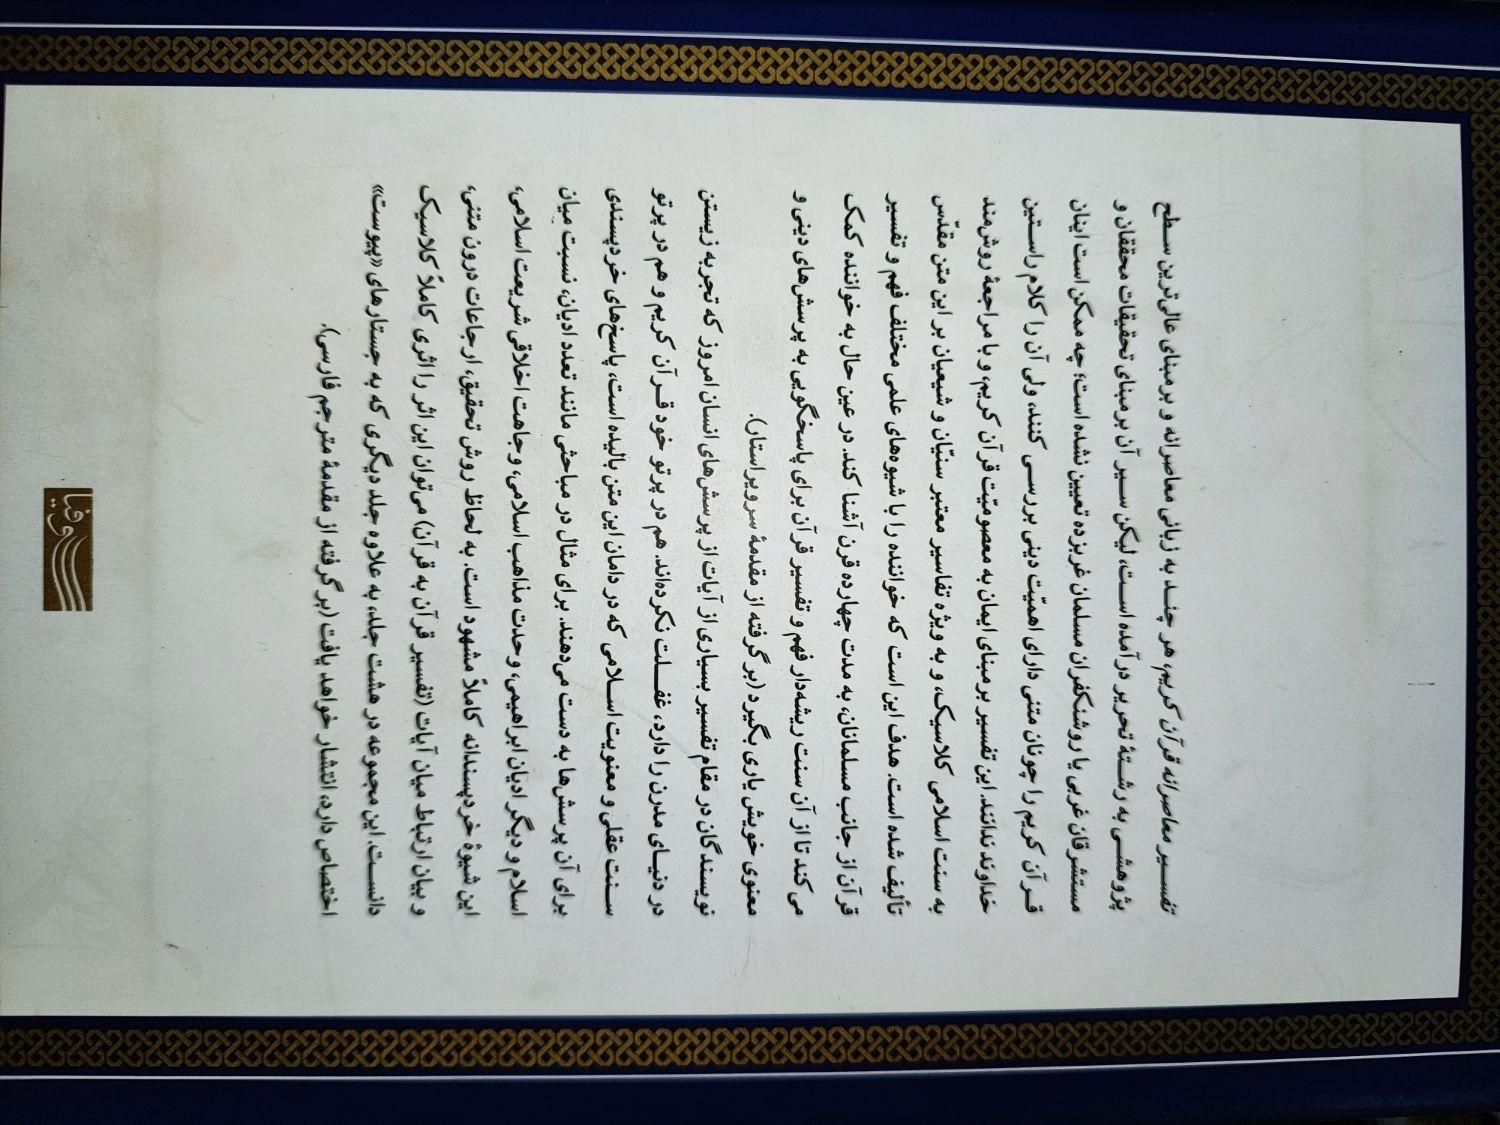 تفسیر معاصرانه قرآن کریم، هر چند به زبانی معاصرانه و بر مبنای عالی‌ترین سطح
پژوهشی به رشتهٔ تحریر درآمده است، لیکن سیر آن بر مبنای تحقیقات محققان و
مستشرقان غربی یا روشنکفران مسلمان غربزده تعیین نشده است؛ چه ممکن است اینان
قرآن کریم را چونان متنی دارای اهمیّت دینی بررسی کنند، ولی آن را کلام راستین
خداوند ندانند. این تفسیر بر مبنای ایمان به معصومیّت قرآن کریم، و با مراجعهٔ روش‌مند
به سنت اسلامی کلاسیک، و به ویژه تفاسیر معتبر سنیّان و شیعیان بر این متن مقدّس
تألیف شده است. هدف این است که خواننده را با شیوه‌های علمی مختلف فهم و تفسیر
قرآن از جانب مسلمانان، به مدت چهارده قرن آشنا کند. در عین حال به خواننده کمک
می‌کند تا از آن سنت ریشه‌دار فهم و تفسیر قرآن برای پاسخگویی به پرسش‌های دینی و
معنوی خویش یاری بگیرد (بر گرفته از مقدمهٔ سرویراستار).
نویسندگان در مقام تفسیر بسیاری از آیات از پرسش‌های انسان امروز که تجربه زیستن
در دنیای مدرن را دارد، غفلت نکرده‌اند. هم در پرتو خود قرآن کریم و هم در پرتو
سنت عقلی و معنویت اسلامی که در دامان این متن بالیده است، پاسخ‌های خردپسندی
برای آن پرسش‌ها به دست می‌دهند. برای مثال در مباحثی مانند تعدد ادیان، نسبت میان
اسلام و دیگر ادیان ابراهیمی، وحدت مذاهب اسلامی، وجاهت اخلاقی شریعت اسلامی،
این شیوهٔ خردپسندانه کاملاً مشهود است. به لحاظ روش تحقیق، ارجاعات درون متنی،
و بیان ارتباط میان آیات (تفسیر قرآن به قرآن) می‌توان این اثر را اثری کاملاً کلاسیک
دانست. این مجموعه در هشت جلد، به علاوه جلد دیگری که به جستارهای «پیوست»
اختصاص دارد، انتشار خواهد یافت (بر گرفته از مقدمهٔ مترجم فارسی).
سوفیا